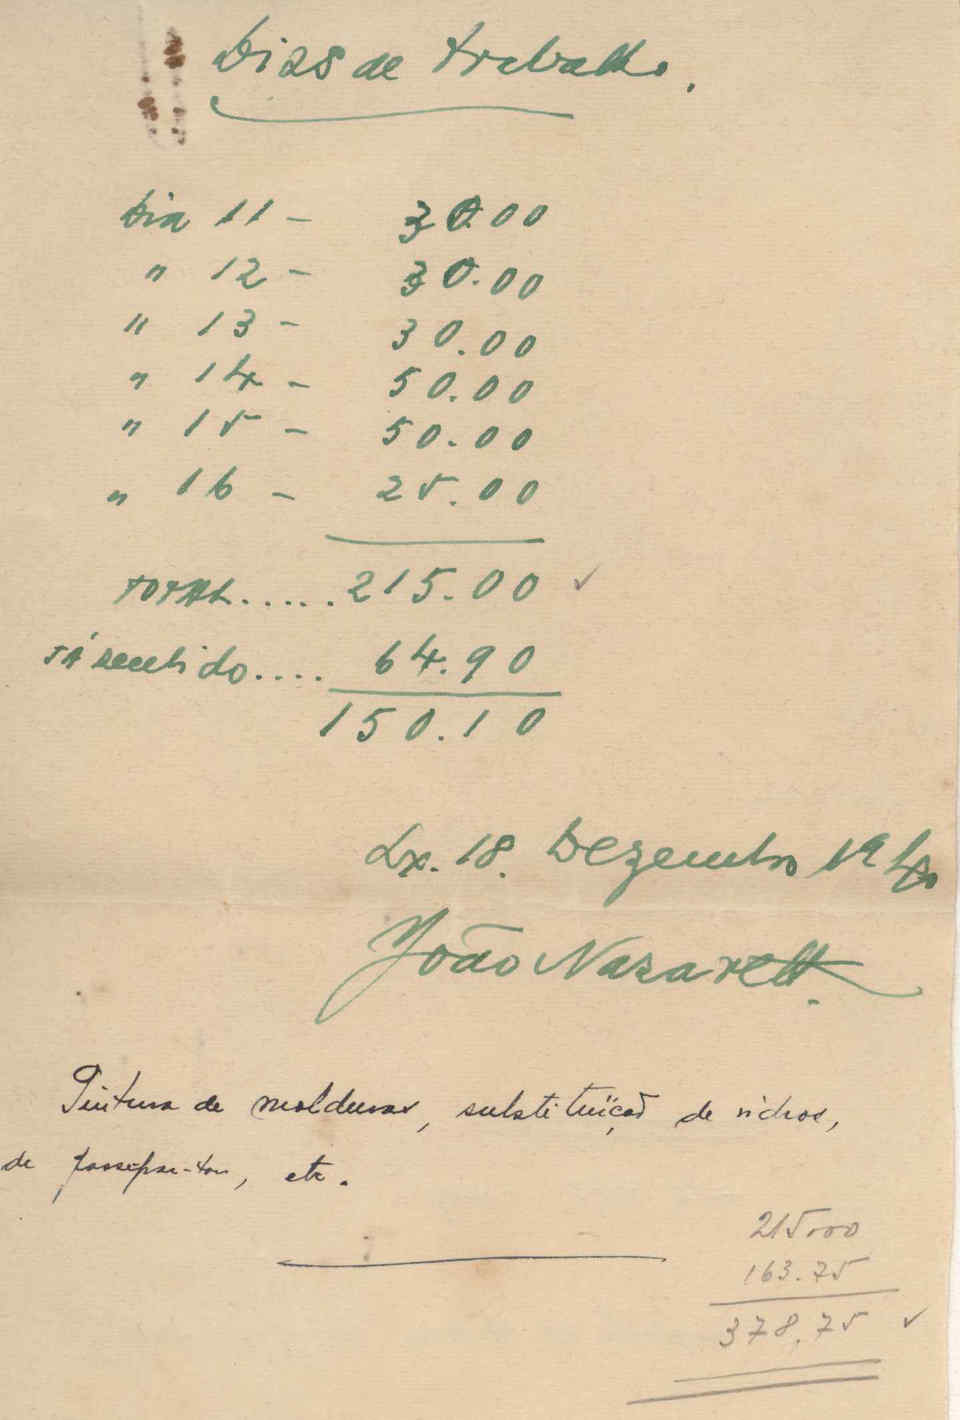 Dias de trabalho.
Dia 11 - 30.00
" 12 - 30.00
" 13 - 30.00
" 14 - 50.00
" 15 - 50.00
" 16 - 25.00
TOTAL.....215.00 ✓
JÁ recebido.... 64.90
150.10
Lx. 18. Dezembro 1940
João Nazareth.
Pintura de molduras, substituïção de vidros,
de passepar-tou, etc.
215.00
163.75
378.75 ✓